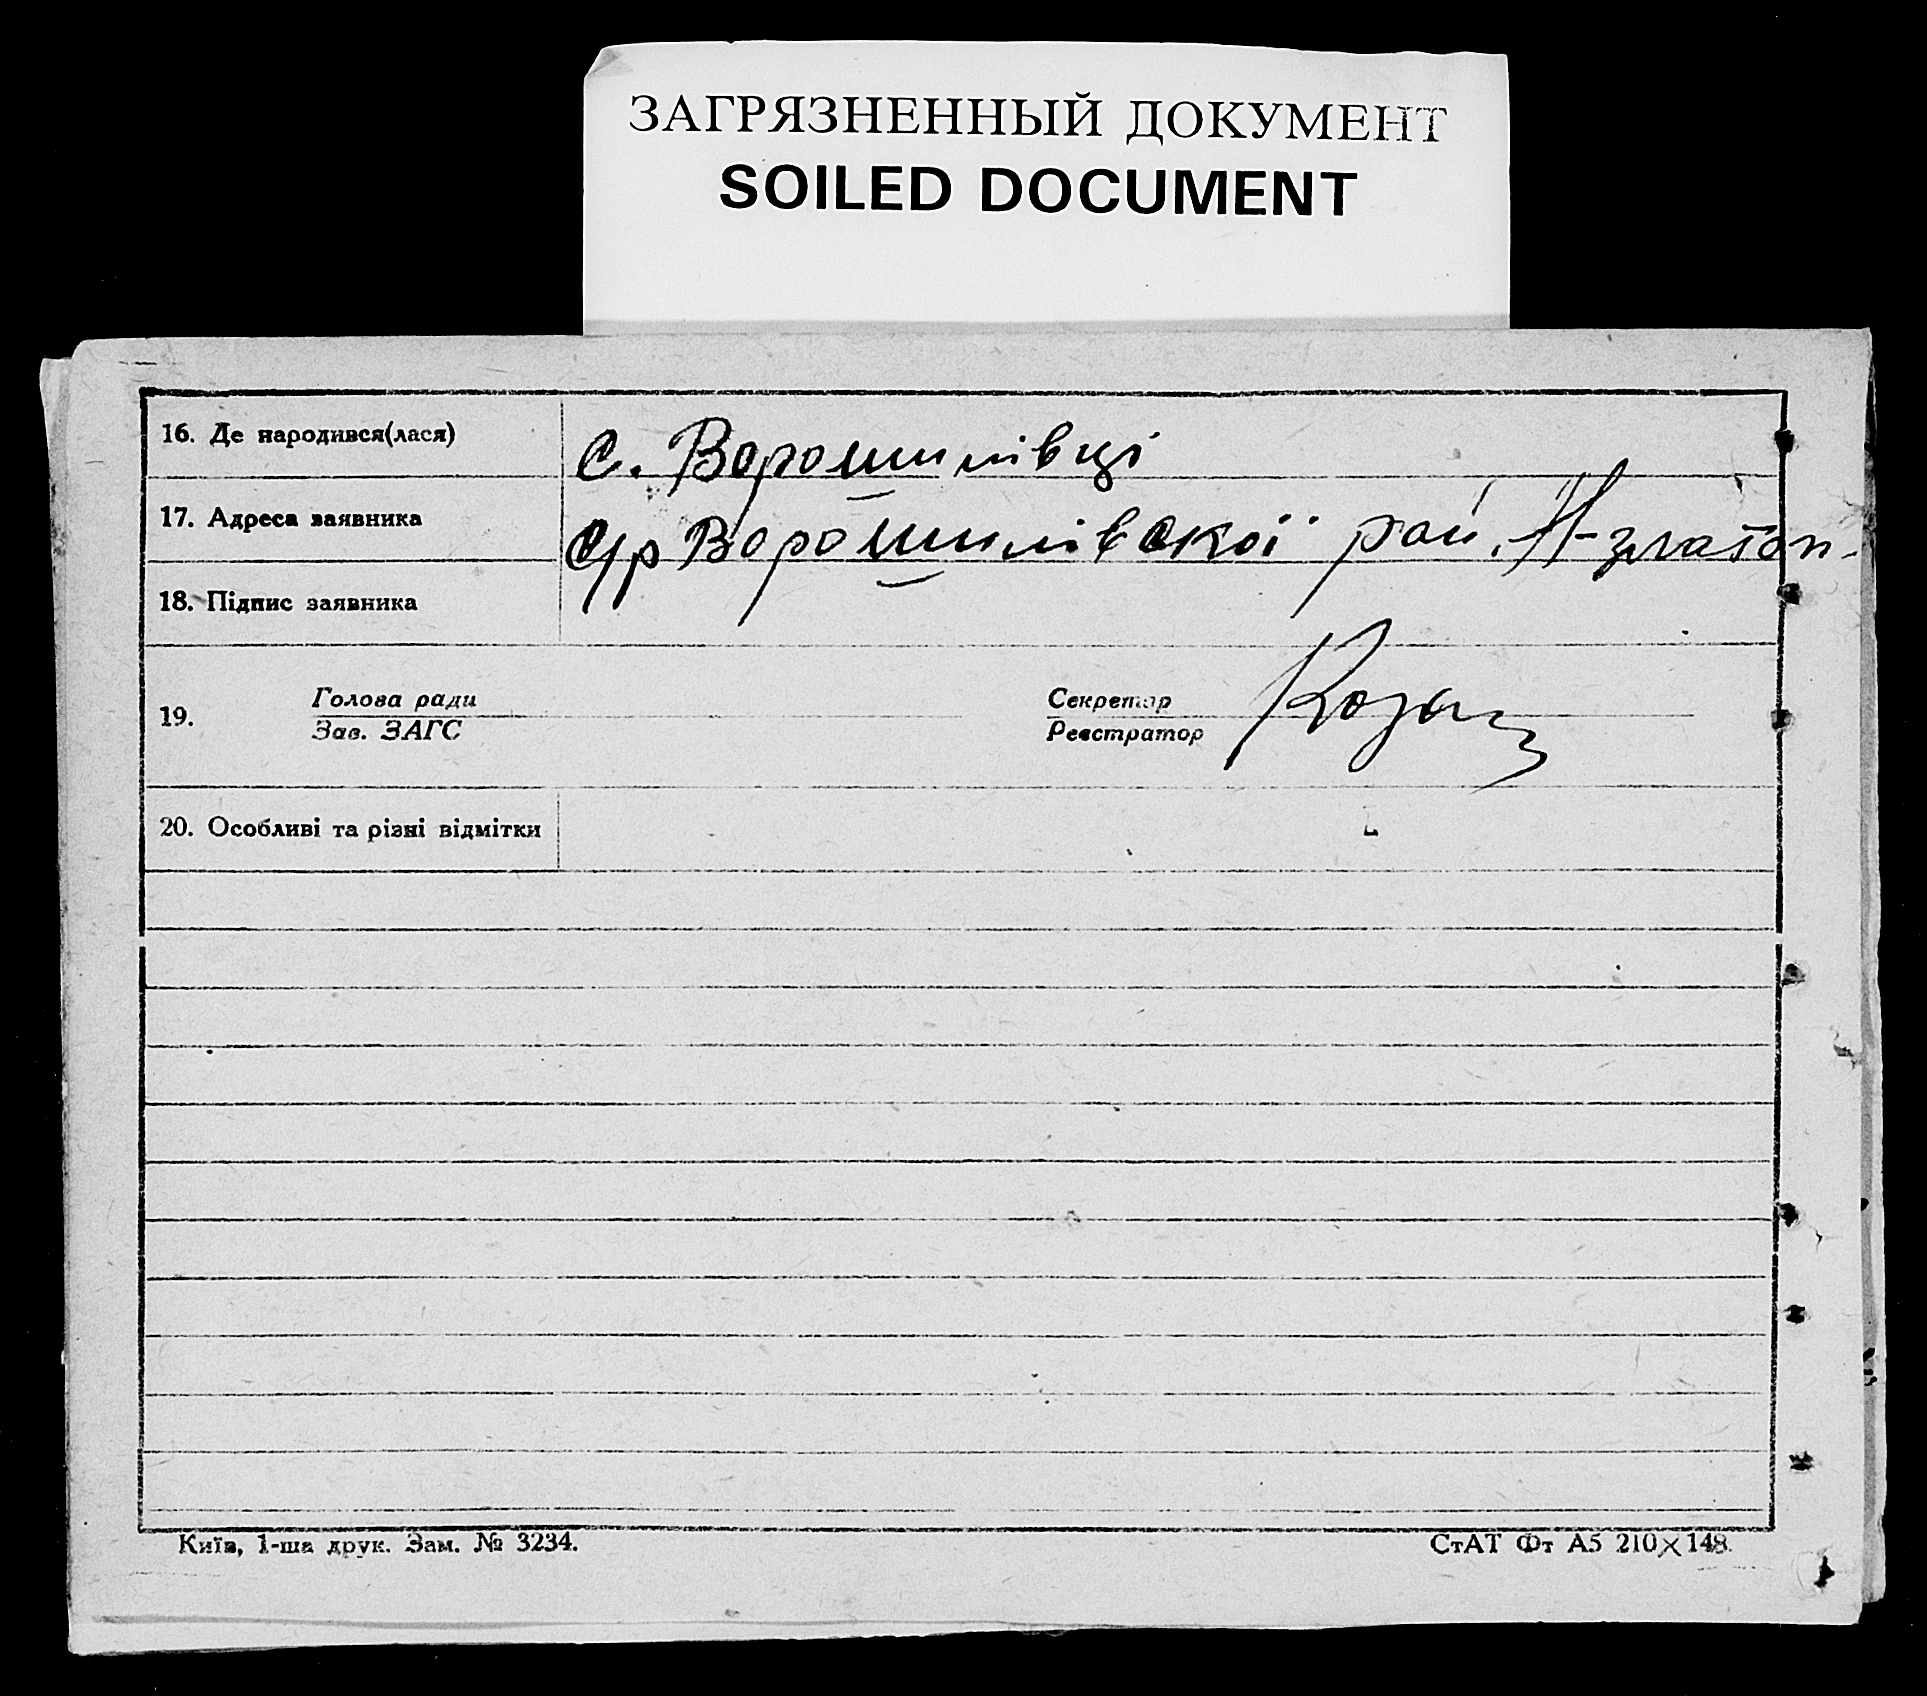 ЗАГРЯЗНЕННЫЙ ДОКУМЕНТ
SOILED DOCUMENT
16. Де народився(лася) с. Ворошилівці
17. Адреса заявника с/р Ворошилівскої рай. Н-златоп-
18. Підпис заявника
19. Голова ради Секретар
Зав. ЗАГС Реєстратор
20. Особливі та різні відмітки
Київ, 1-ша друк. Зам. № 3234. СтАТ Фт А5 210×148.